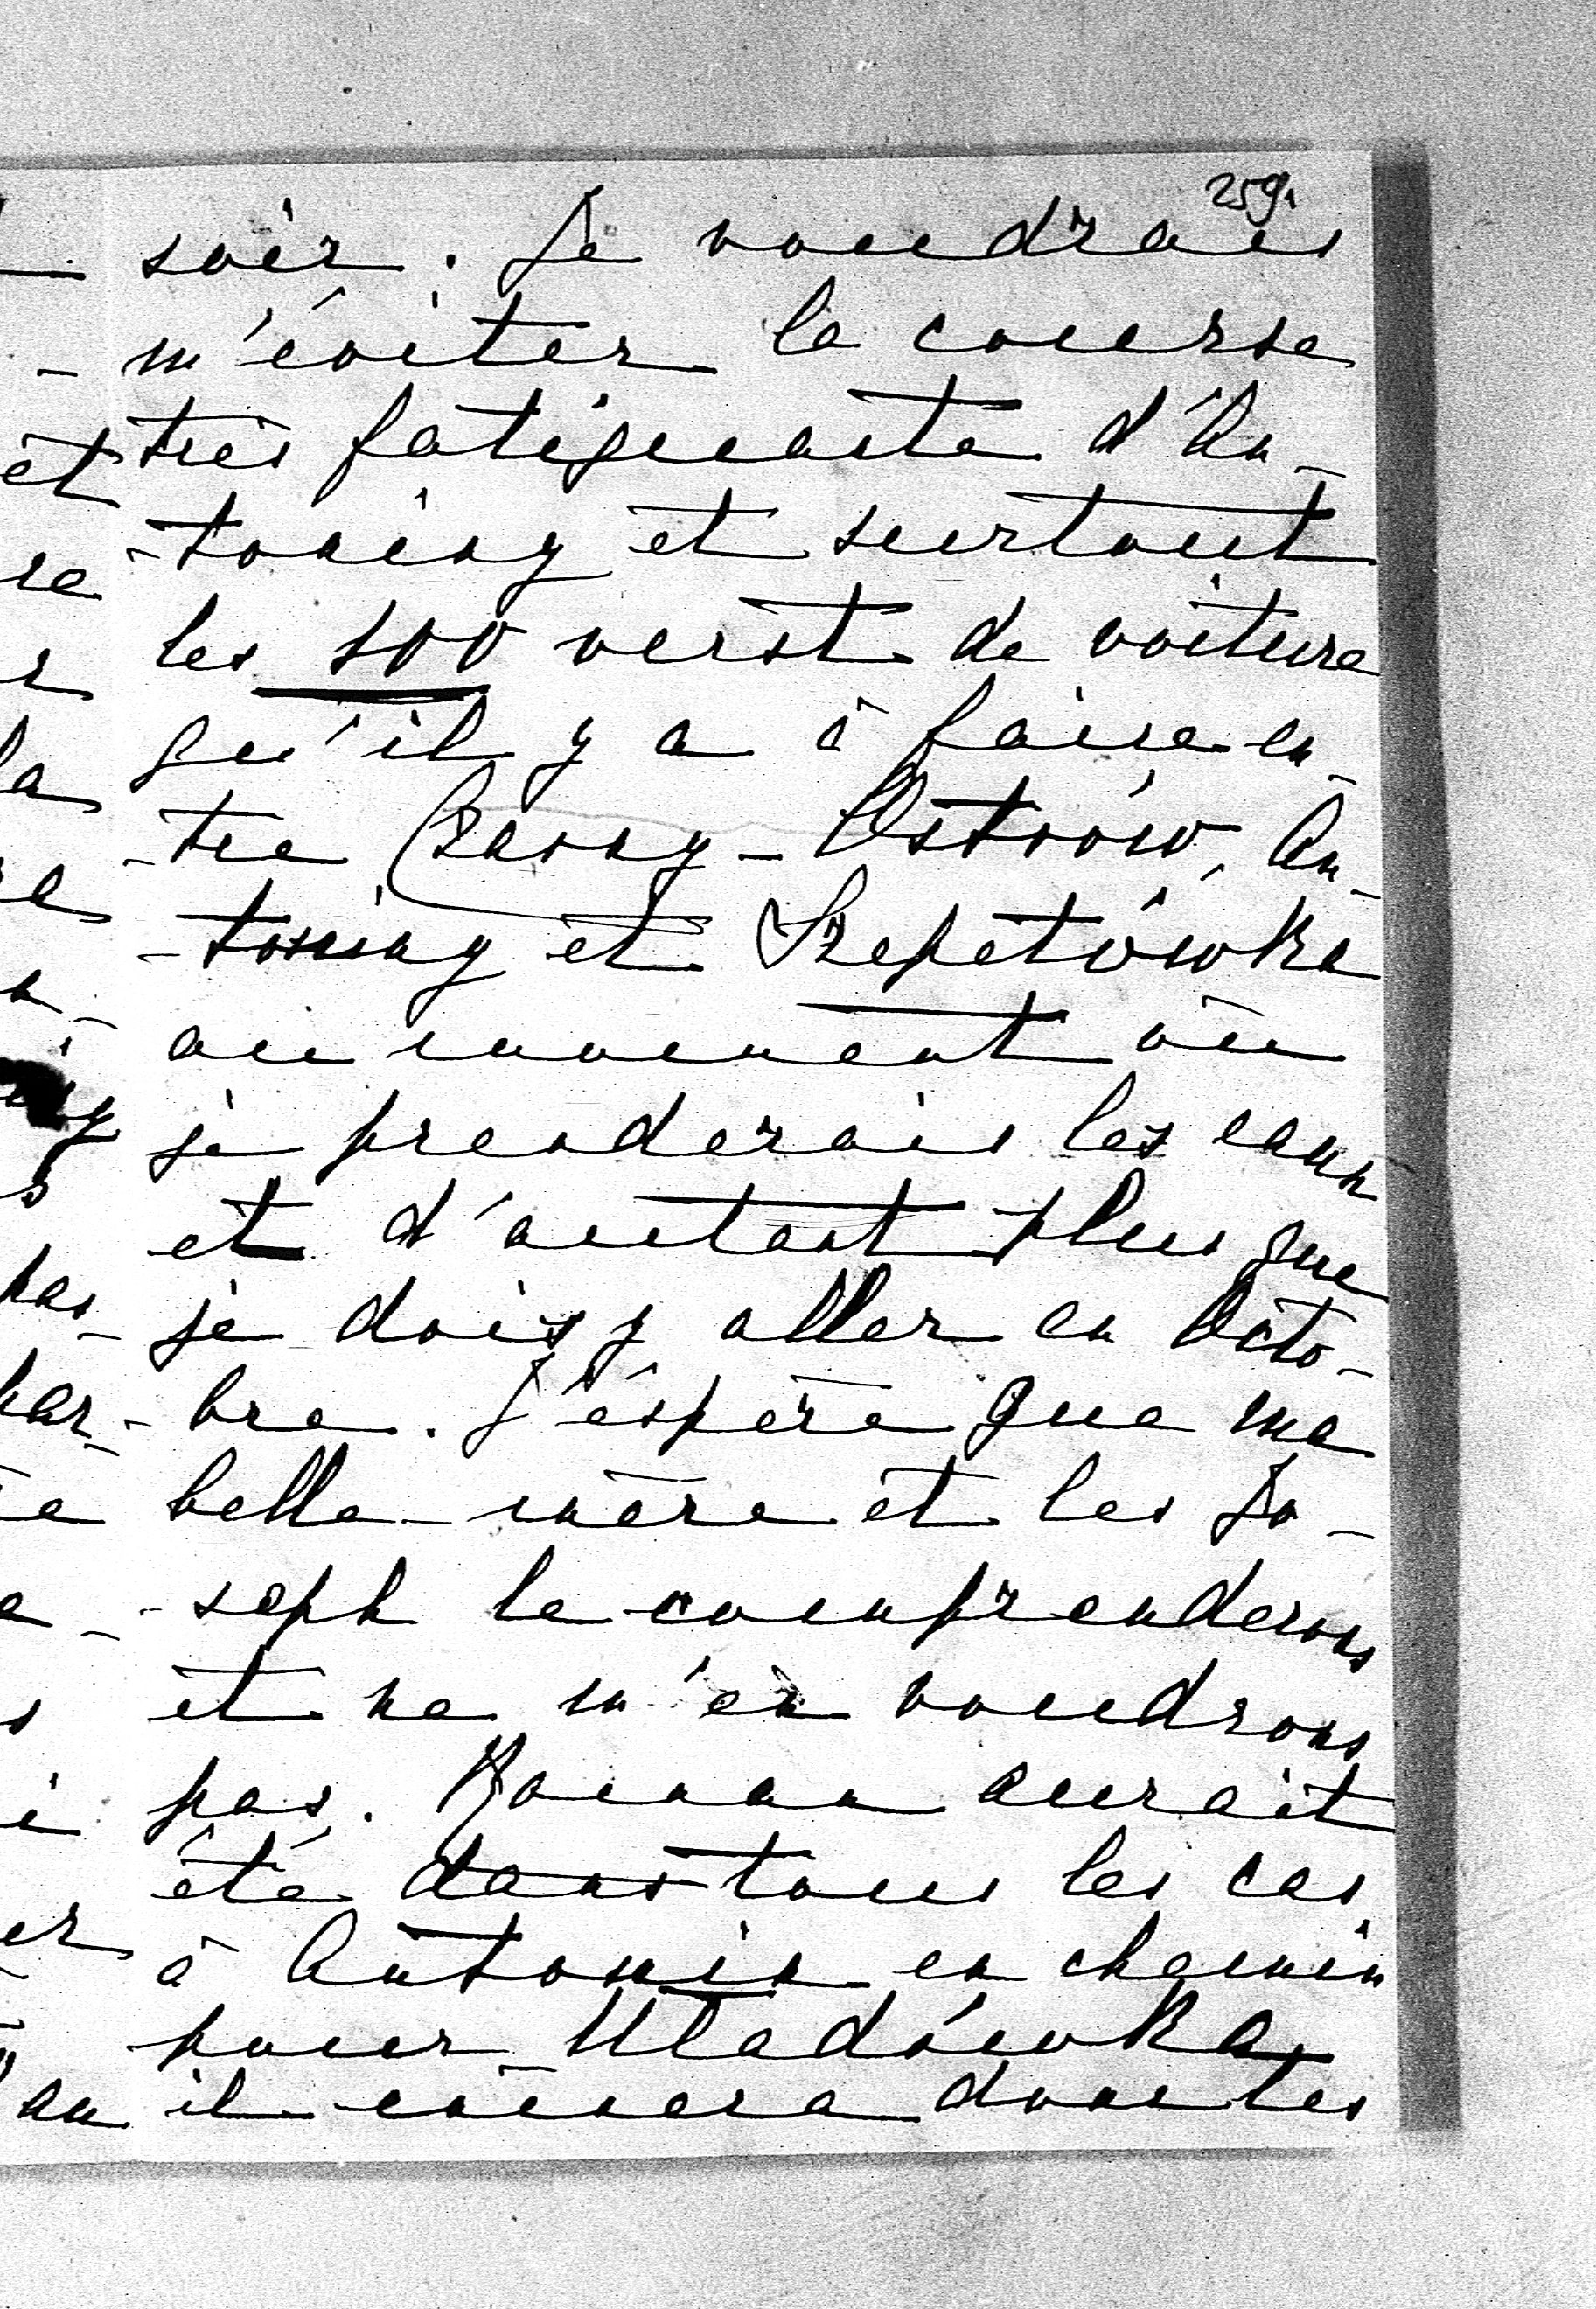 259.
soir. Je voudrais
m'éviter la course
très fatiguante d'An-
-toniny et surtout
les 100 verst de voiture
qu'il y a à faire en-
-tre Czarny-Ostrów, An-
-toniny et Szepetówka
au moment où
je prenderais les eaux
et d'autant plus que
je dois y aller en Octo-
-bre. J'éspère que ma
belle-mère et les Jo-
-seph le comprenderons
et ne m'en voudrons
pas. Roman aurait
été dans tous les cas
à Antonin en chemin
pour Uladówka,
il mènera donc les